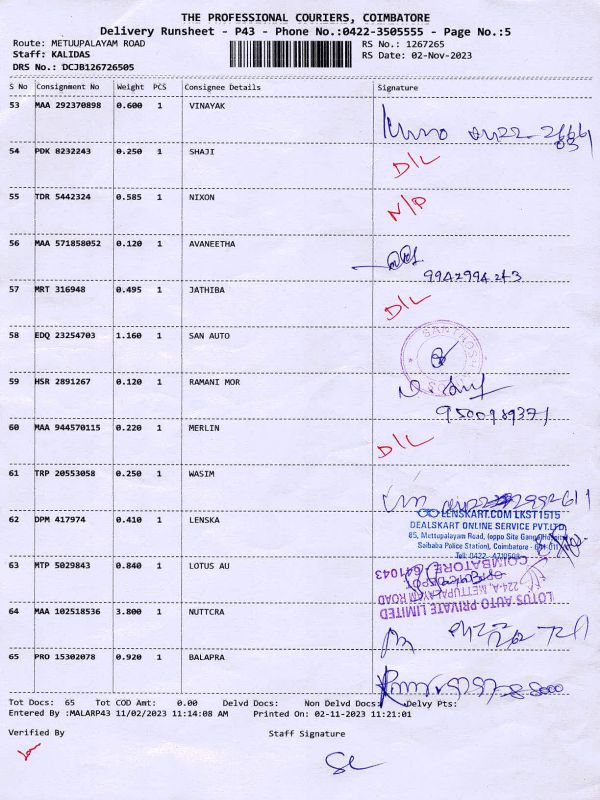 THE PROFESSIONAL COURIERS, COIMBATORE
Delivery Runsheet - P43 - Phone No.:0422-3505555 - Page No.:5
Route: METUUPALAYAM ROAD RS No.: 1267265
Staff: KALIDAS RS Date: 02-Nov-2023
DRS No.: DCJB126726505
S No Consignment No Weight PCS Consignee Details Signature
53 MAA 292370898 0.600 1 VINAYAK
54 PDK 8232243 0.250 1 SHAJI D/L
55 TDR 5442324 0.585 1 NIXON N/P
56 MAA 571858052 0.120 1 AVANEETHA
9942994243
57 MRT 316948 0.495 1 JATHIBA D/L
58 EDQ 23254703 1.160 1 SAN AUTO
59 HSR 2891267 0.120 1 RAMANI MOR
9500989371
60 MAA 944570115 0.220 1 MERLIN D/L
61 TRP 20553058 0.250 1 WASIM
62 DPM 417974 0.410 1 LENSKA
LENSKART.COM LKST1515
DEALSKART ONLINE SERVICE PVT.LTD
85, Mettupalayam Road, (oppo Site Gang
Saibaba Police Station), Coimbatore - 641 011
Tell: 0422
63 MTP 5029843 0.840 1 LOTUS AU
LOTUS AUTO PRIVATE LIMITED
224-A, METTUPALAYAM ROAD
COIMBATORE 641043
64 MAA 102518536 3.800 1 NUTTCRA
65 PRO 15302078 0.920 1 BALAPRA
Tot Docs: 65 Tot COD Amt: 0.00 Delvd Docs: Non Delvd Docs: Delvy Pts:
Entered By :MALARP43 11/02/2023 11:14:08 AM Printed On: 02-11-2023 11:21:01
Verified By Staff Signature